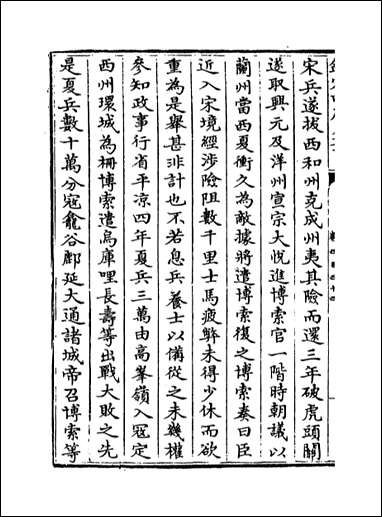 宋兵遂拔西和州克成州夷其險而還三年破虎頭關
遂取興元及洋州宣宗大悅進博索官一階時朝議以
蘭州當西夏衝久為敵據將遣博索復之博索奏曰臣
近入宋境經涉險阻數千里士馬疲弊未得少休而欲
重為是舉甚非計也不若息兵養士以備從之未幾權
參知政事行省平涼四年夏兵三萬由高峯嶺入寇定
西州環城為柵博索遣烏庫哩長壽等出戰大敗之先
是夏兵數十萬分寇龕谷鄜延大通諸城帝召博索等